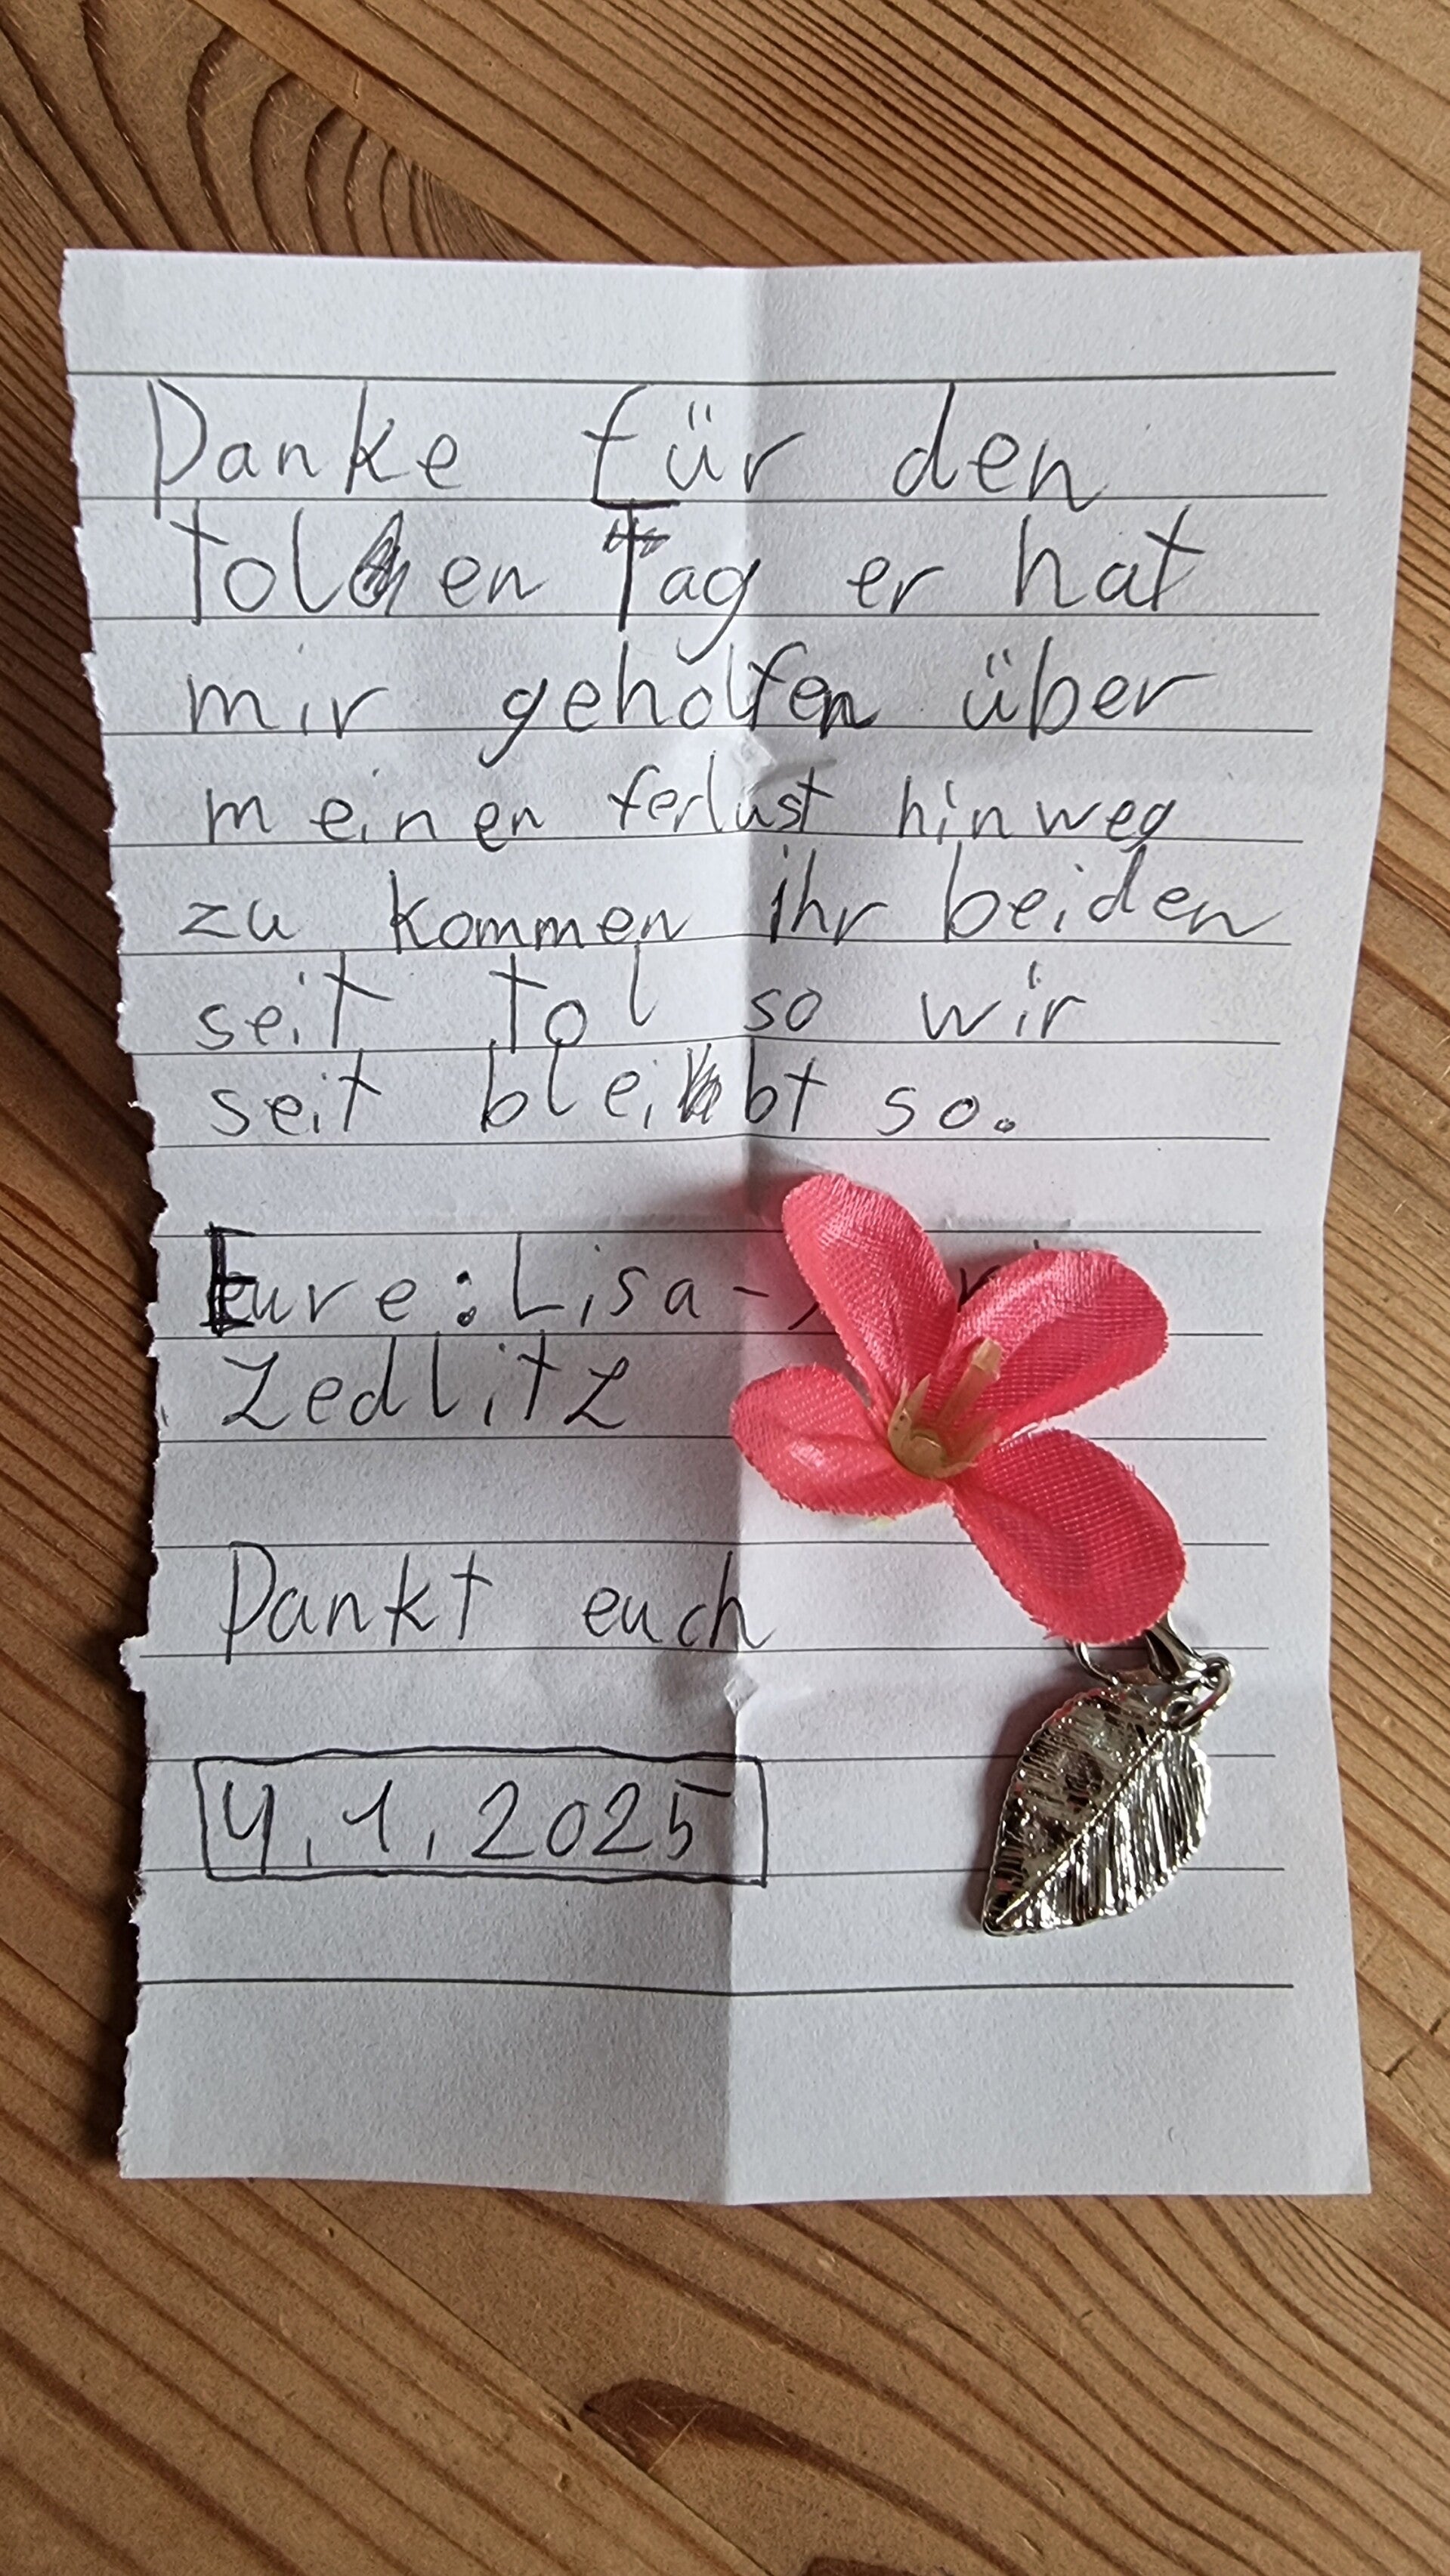 Danke für den
tolen Tag er hat
mir geholfen über
meinen ferlust hinweg
zu kommen ihr beiden
seit tol so wir
seit bleibt so.
Eure: Lisa-
Zedlitz
Dankt euch
4.1.2025